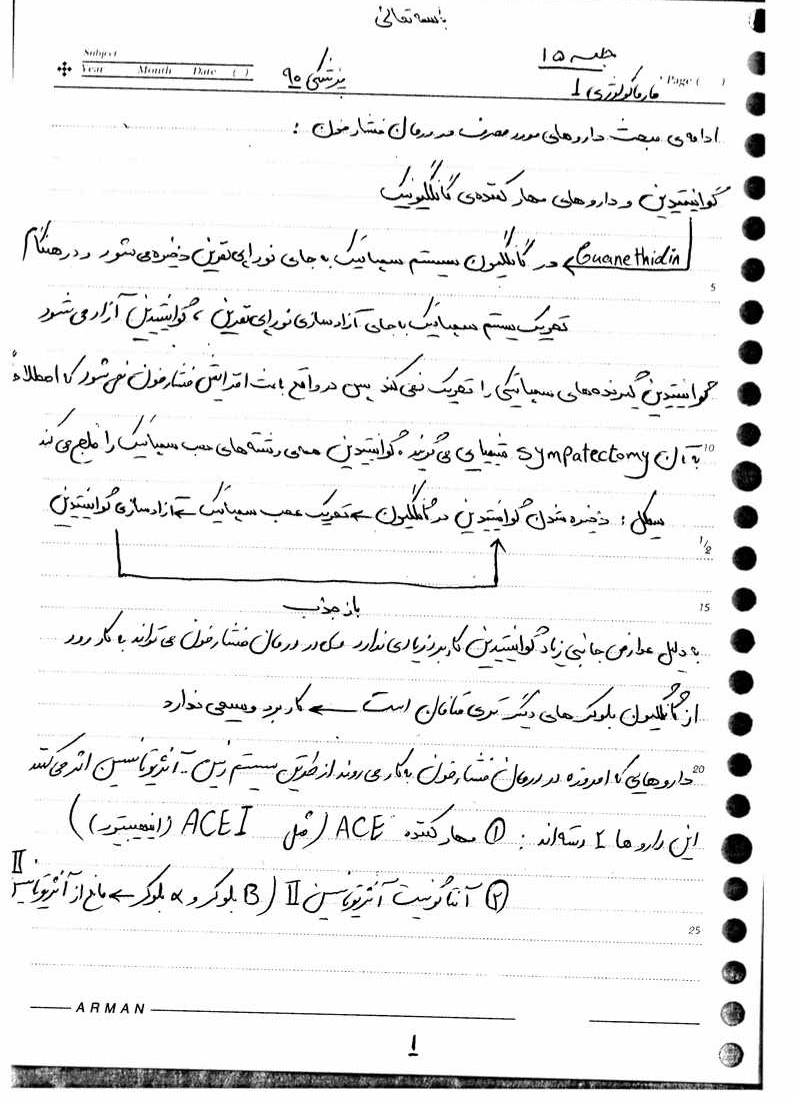 باسمه تعالی
جلسه ۱۵
Subject
Year Month Date ( )
پزشکی ۹۰
فارماکولوژی 1
Page ( )
ادامه‌ی مبحث داروهای مورد مصرف در درمان فشار خون :
گوانیتیدین و داروهای مهار کننده‌ی گانگلیونیک
Guanethidin ← در گانگلیون سیستم سمپاتیک به جای نوراپی نفرین ذخیره می شود و در هنگام
5
تحریک سیستم سمپاتیک به جای آزادسازی نوراپی نفرین ، گوانیتیدین آزاد می شود
گوانیتیدین گیرنده‌های سمپاتیکی را تحریک نمی کند پس در واقع باعث افزایش فشار خون نمی شود که اصطلاحاً
به آن sympatectomy شیمیایی می گویند . گوانیتیدین همه‌ی رشته‌های عصب سمپاتیک را فلج می کند
10
سیکل : ذخیره شدن گوانیتیدین در گانگلیون ← تحریک عصب سمپاتیک ← آزادسازی گوانیتیدین
1/2
باز جذب
15
به دلیل عوارض جانبی زیاد گوانیتیدین کاربرد زیادی ندارد در درمان فشار خون می تواند به کار رود
از گانگلیون بلوکرهای دیگر تری متافان است ← کاربرد وسیعی ندارد
داروهایی که امروزه در درمان فشار خون به کار می روند از طریق سیستم رنین - آنژیوتانسین اثر می کنند
20
این داروها ۲ دسته‌اند : ① مهار کننده ACE (مثل ACE I (اینهیبیتور))
② آنتاگونیست آنژیوتانسین II (B بلوکر و α بلوکر ← مانع از آنژیوتانسین II
25
ARMAN
1